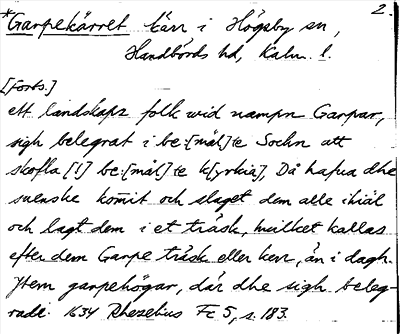 2.
*Garpekärret kärr i Högsby sn,
Handbörds hd, Kalm. l.
[Forts.]
ett landskaps folk wid nampn Garpar,
sigh belegrat i be:[mäl]te Sochn att
skofla [!] be:[mäl]te k[yrkia], Då hafua dhe
suenske kom̄it och slaget dem alle ihiäl
och lagt dem i et träsk, huilket kallas
efter dem Garpe träsk eller kerr, än i dagh.
Jtem garpehögar, där dhe sigh beleg-
rade. 1634 Rhezelius Fc 5, s. 183.